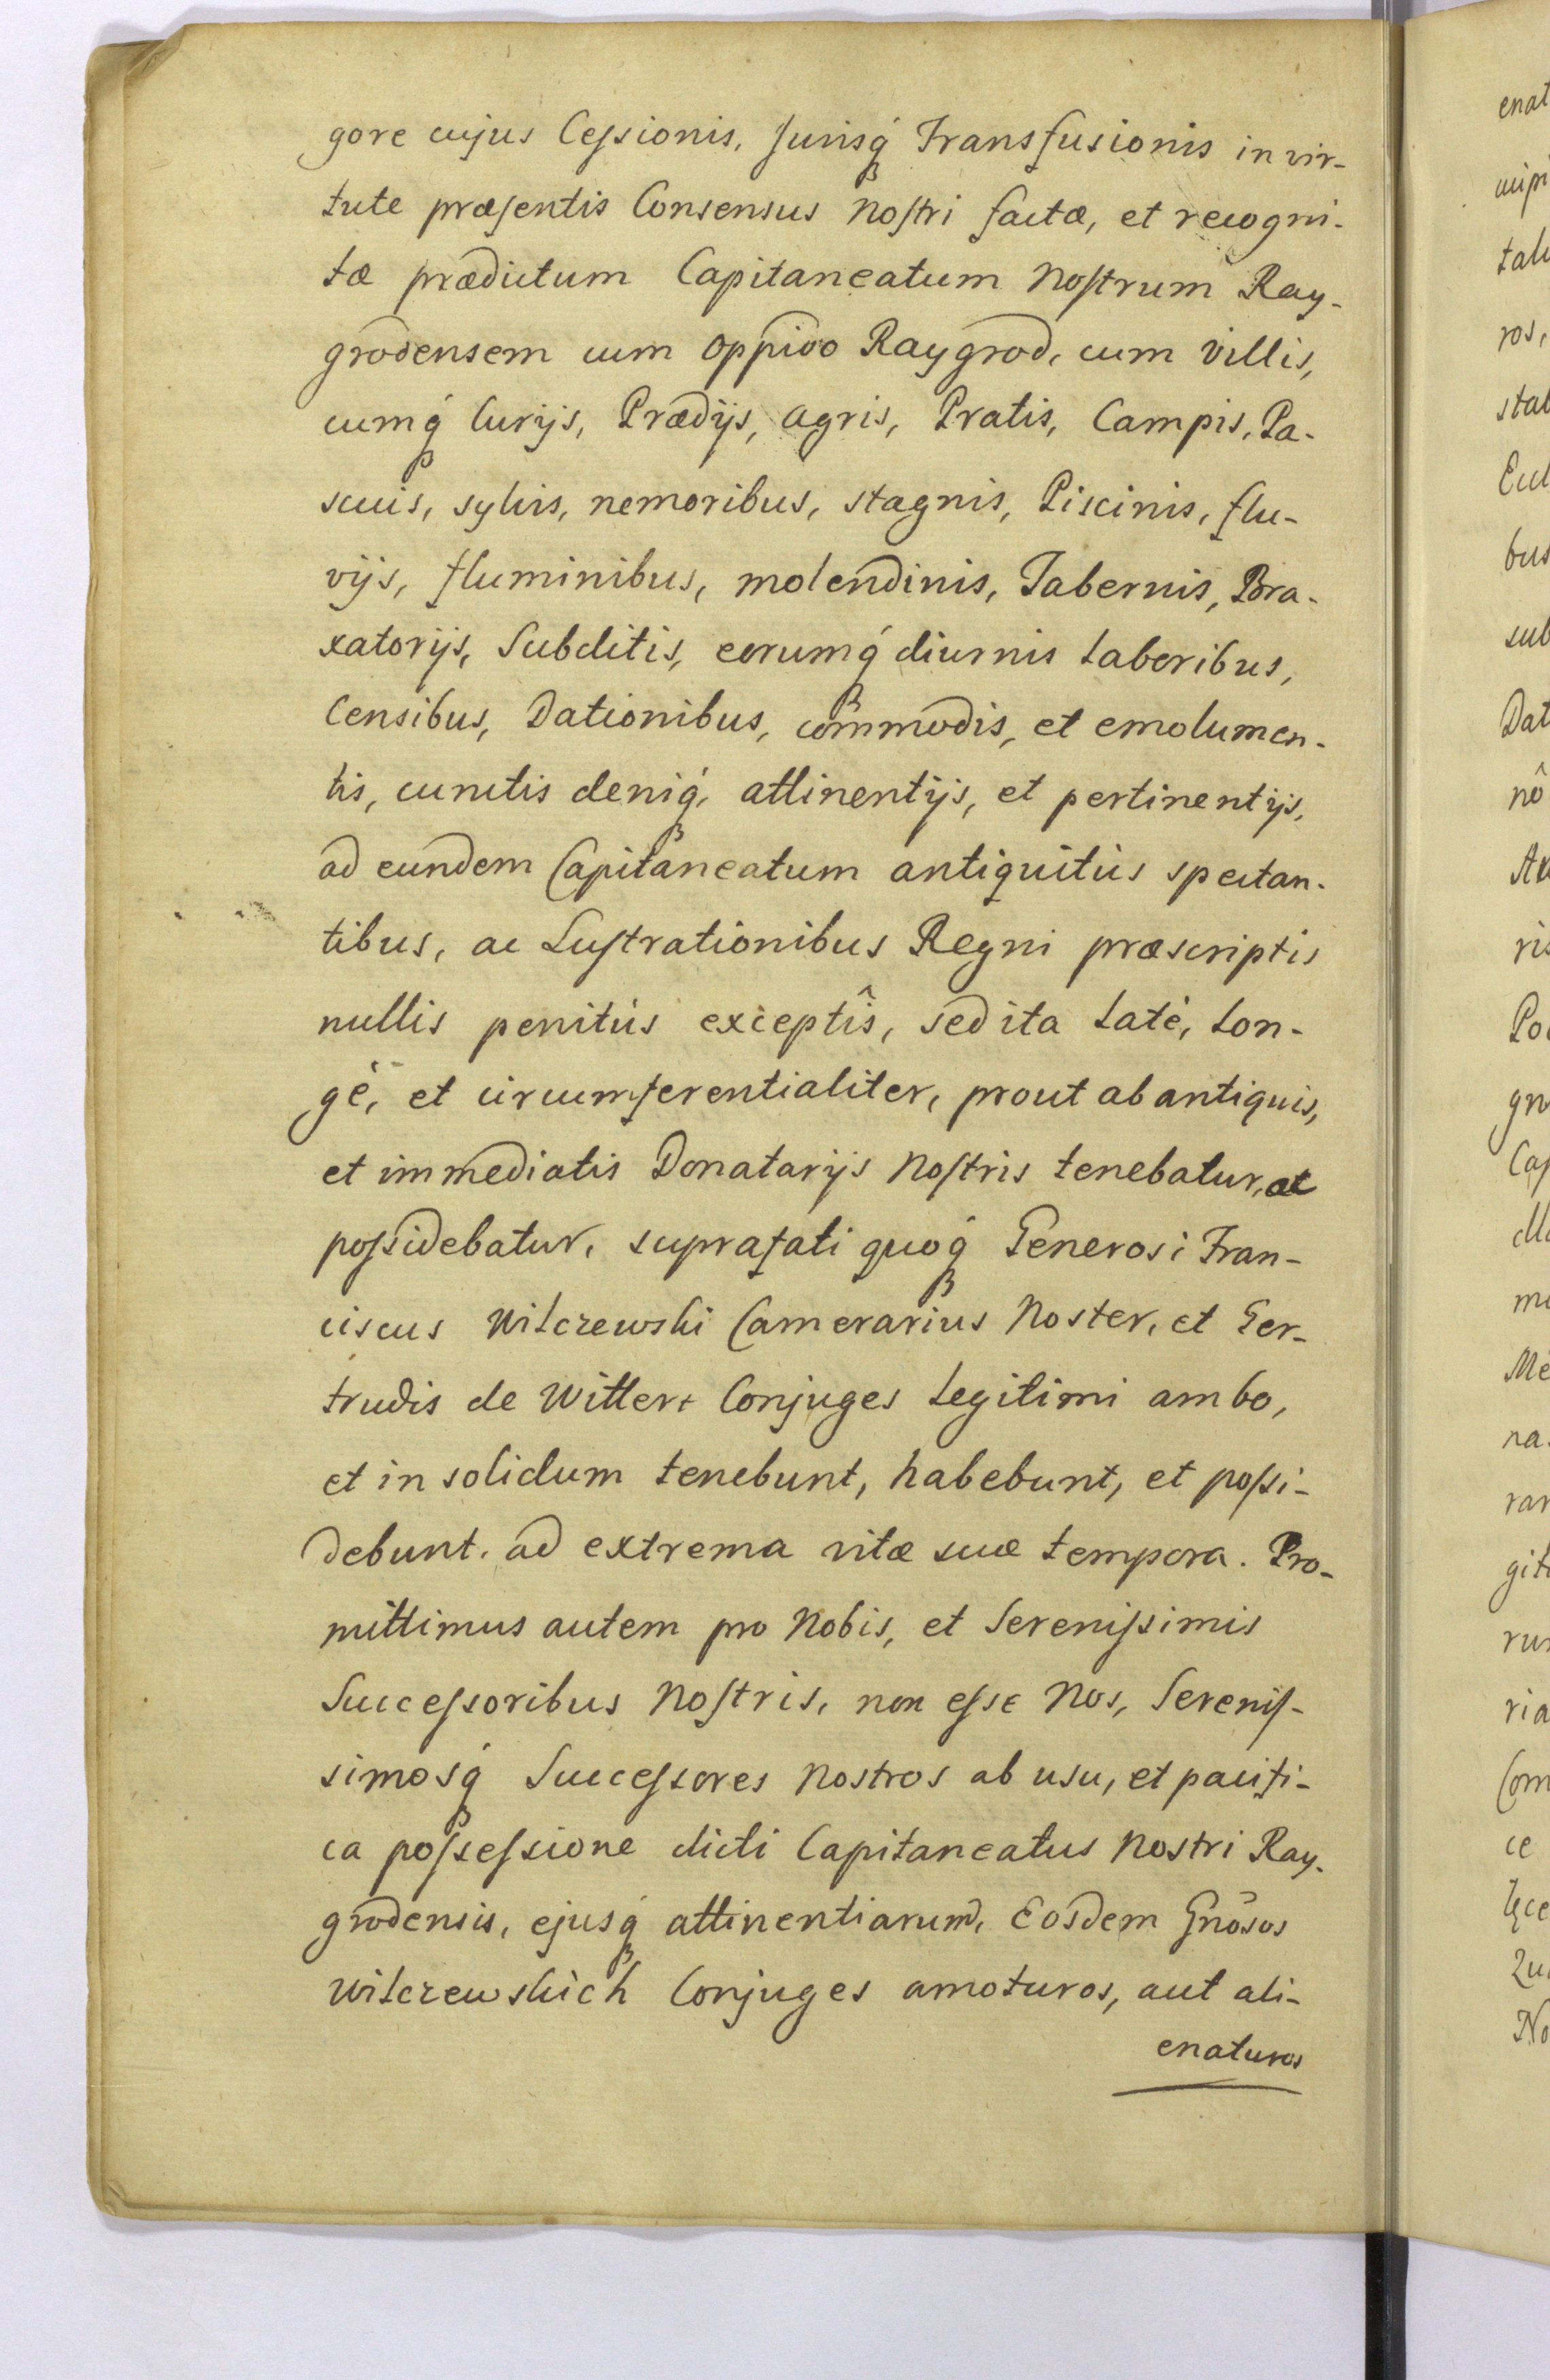 gore cujus Ceſsionis, Jurisq́ Transfusionis in vir-
tute præſentis Consensus noſtri factæ, et recogni-
tæ prædictum Capitaneatum noſtrum Ray-
grodensem cum oppido Raygrod, cum villis,
cumq́ Curijs, Prædijs, agris, Pratis, Campis, Pa-
scuis, sylvis, nemoribus, stagnis, Piscinis, flu-
vijs, fluminibus, molendinis, Tabernis, Bra-
xatorijs, Subditis, eorumq́ diurnis Laboribus,
Censibus, Dationibus, com̃modis, et emolumen-
tis, cunctis deniq́, attinentijs, et pertinentijs,
ad eundem Capitaneatum antiquitùs spectan-
tibus, ac Luſtrationibus Regni præscriptis
nullis penitùs exceptîs, sed ita Latè, Lon-
gè, et circumferentialiter, prout ab antiquis,
et immediatis Donatarijs noſtris tenebatur, ac
poſsidebatur, suprafati quoq́ Generosi Fran-
ciscus Wilczewski Camerarius Noster, et Ger-
trudis de Wittert Conjuges Legitimi ambo,
et in solidum tenebunt, habebunt, et poſsi-
debunt, ad extrema vitæ suæ tempora. Pro-
mittimus autem pro Nobis, et Sereniſsimis
Succeſsoribus noſtris, non eſse Nos, Sereniſ-
simosq́ Succeſsores nostros ab usu, et pacifi-
ca poſseſsione dicti Capitaneatus nostri Ray-
grodensis, ejusq́ attinentiarum, Eosdem Gnõsos
Wilczewskich Conjuges amoturos, aut ali-
enaturos
enat
ros,
bus
sub
Dat
nô
ris
Cap
ce
No